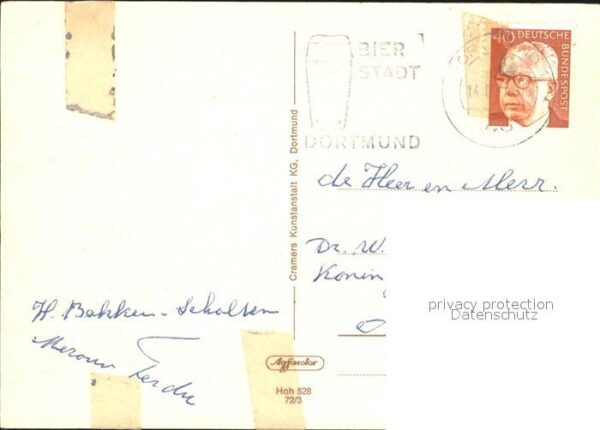 BIER
STADT
DORTMUND
14
40 DEUTSCHE
BUNDESPOST
Cramers Kunstanstalt KG, Dortmund
de Heer en Mevr.
Dr. W.
Konin
H. Bakken-Scholten
privacy protection
Datenschutz
Agfacolor
Hoh 528
72/3